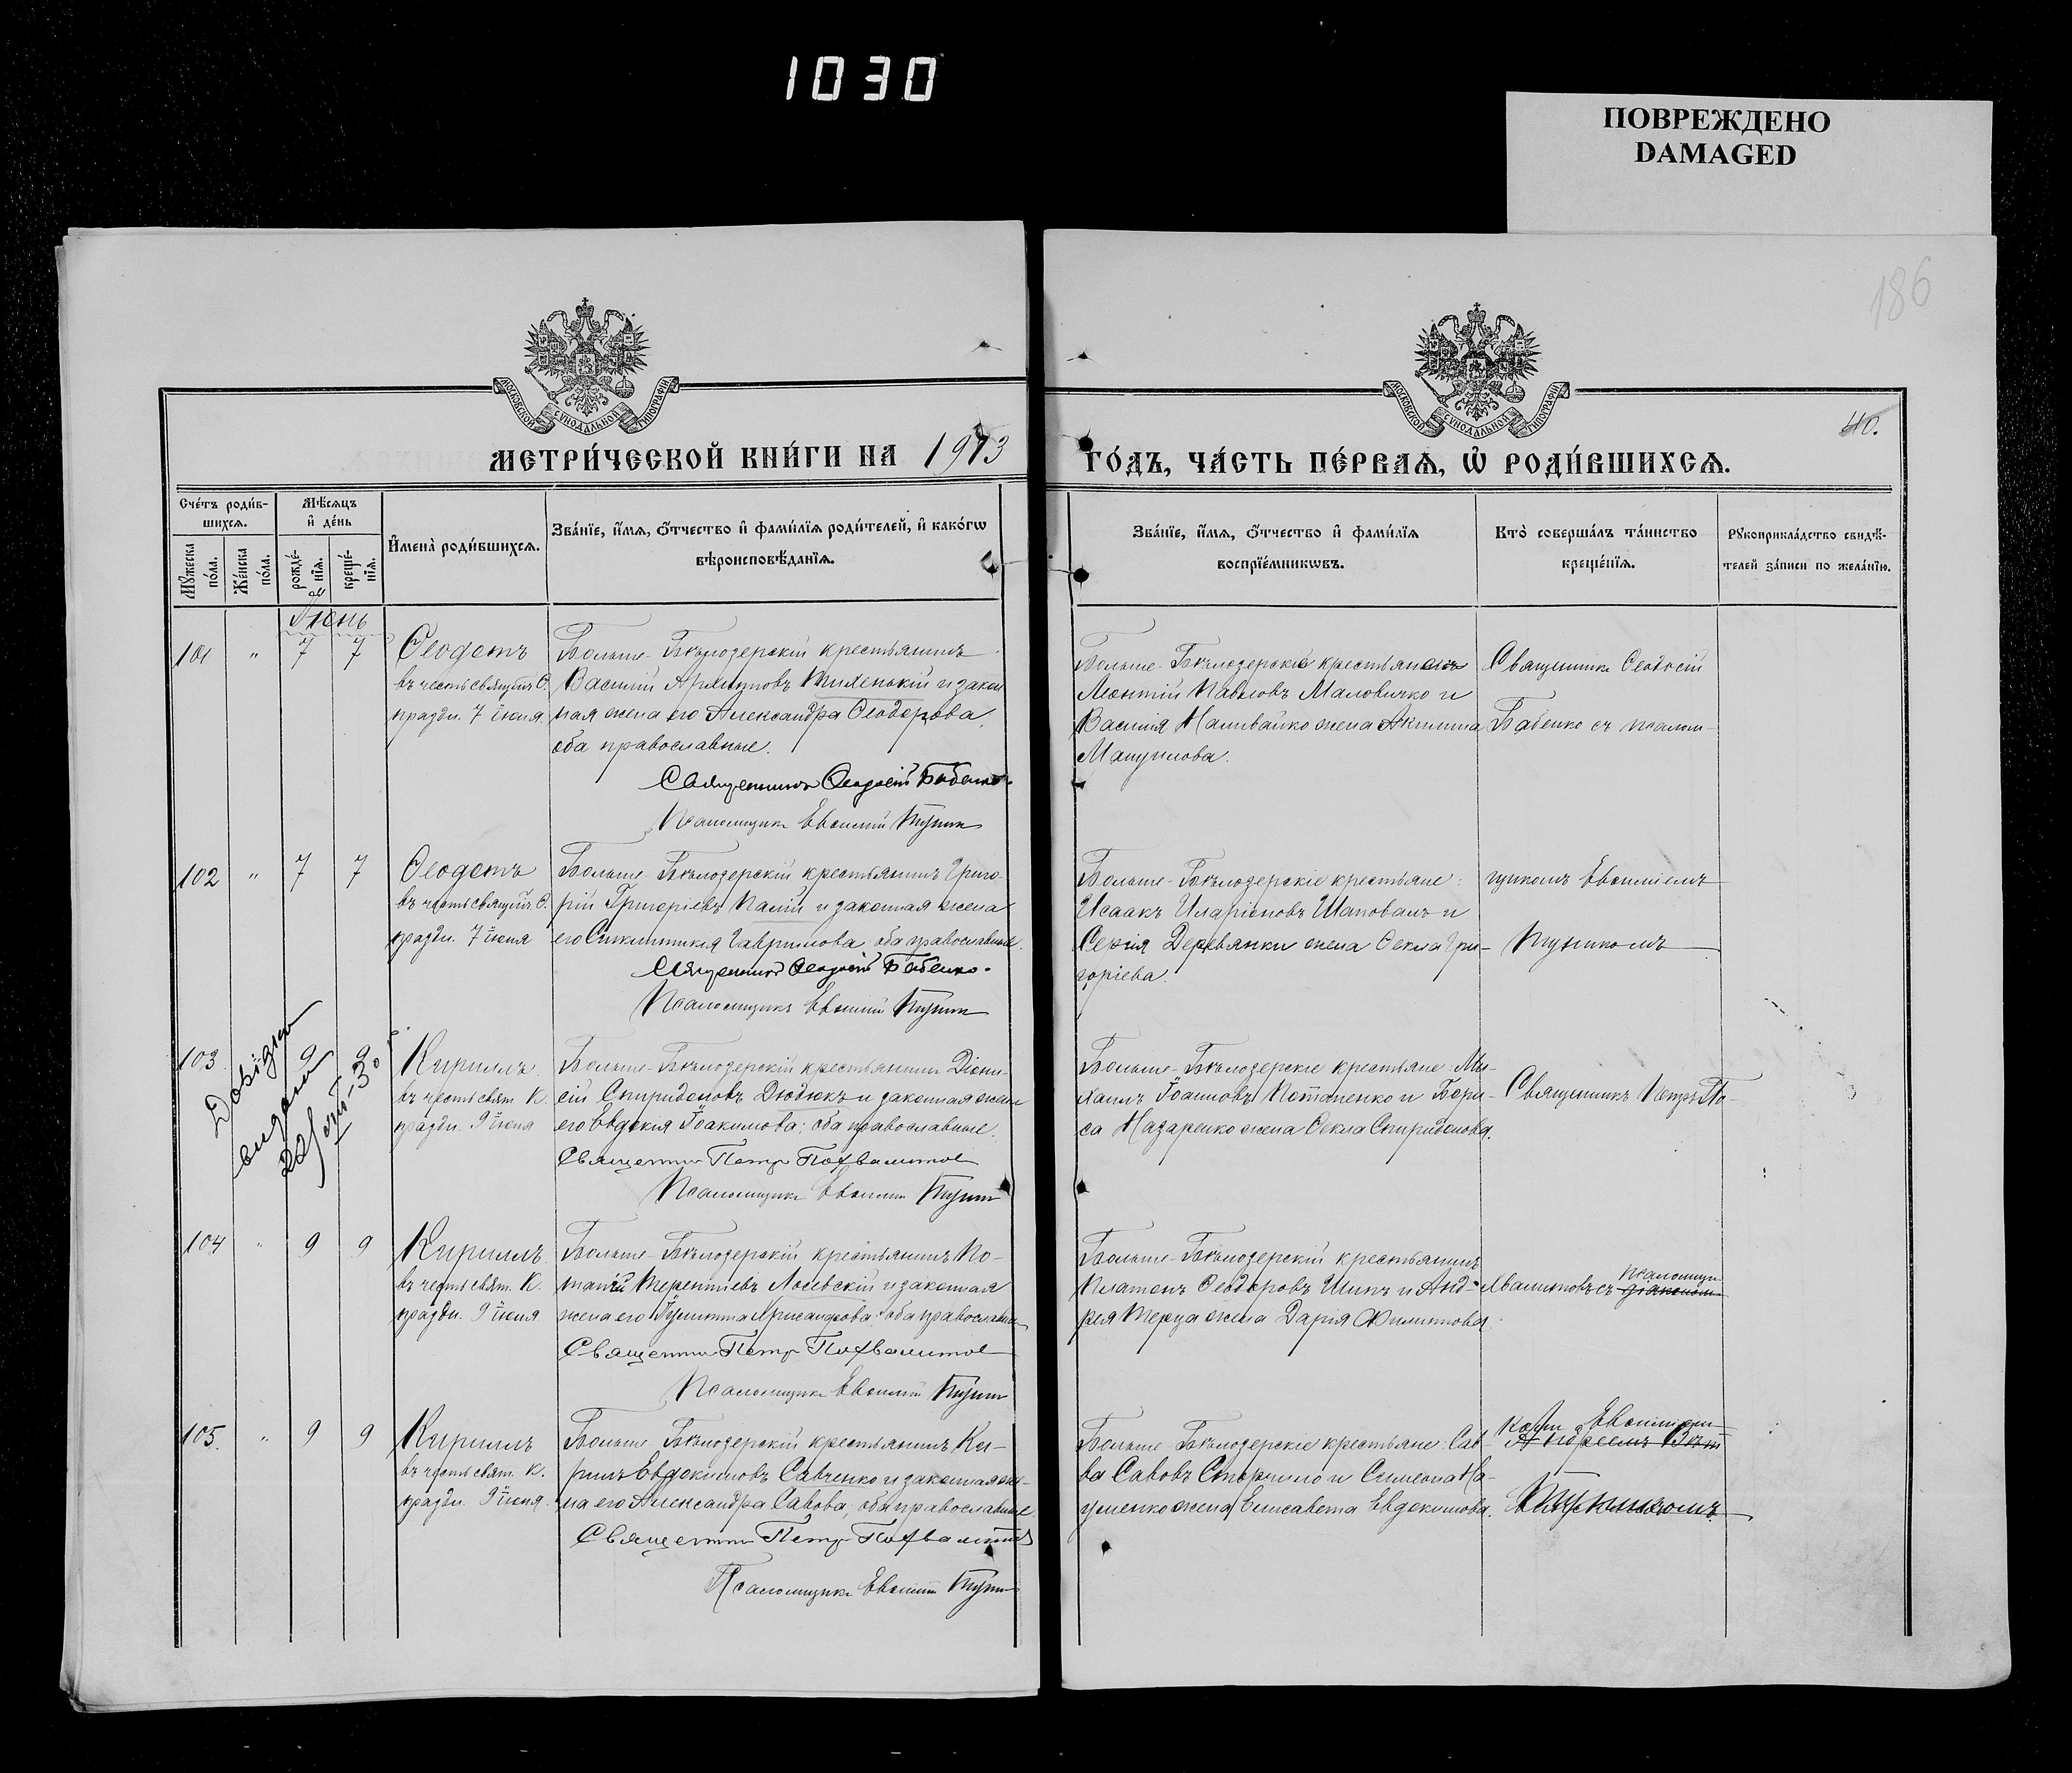 1030
ПОВРЕЖДЕНО
DAMAGED
186
МОСКОВСКОЙ СѴНОДАЛЬНОЙ ТИПОГРАФІИ
МОСКОВСКОЙ СѴНОДАЛЬНОЙ ТИПОГРАФІИ
40.
МЕТРИ́ЧЕСКОЙ КНИ́ГИ НА 1913
ГО́ДЪ, ЧА́СТЬ ПЕ́РВАѦ, Ѡ҆ РОДИ́ВШИХСѦ.
Сче́тъ роди́в-
шихсѧ.
Мѣ́сѧцъ
и҆ де́нь
Мꙋ́жеска
по́ла.
Же́нска
по́ла.
рожде́-
нїѧ.
креще́-
нїѧ.
И҆мена̀ роди́вшихсѧ.
Зва́нїе, и҆́мѧ, ѻ҆́тчество и҆ фами́лїѧ роди́телей, и҆ како́гѡ
вѣроисповѣ́данїѧ.
Зва́нїе, и҆́мѧ, ѻ҆́тчество и҆ фами́лїѧ
воспрїе́мникѡвъ.
Кто̀ соверша́лъ та́инство
креще́нїѧ.
Рꙋкоприкла́дство свидѣ́-
телей за́писи по жела́нїю.
Іюнь
101 " 7 7
Ѳеодотъ
въ честь свящ. Ѳ.
праздн. 7 іюня.
Больше-Бѣлозерскій крестьянинъ
Василій Архиповъ Тихенькій и закон
ная жена его Александра Ѳеодорова,
оба православные.
Священникъ Ѳеодосій Бабенко.
Псаломщикъ Евѳимій
Больше-Бѣлозерскіе крестьяне
Леонтій Павловъ Маловичко и
Василія Наливайко жена Акилина
Мануилова.
Священникъ Ѳеодосій
Бабенко съ псалом-
102 " 7 7
Ѳеодотъ
въ честь свящ. Ѳ.
праздн. 7 іюня
Больше-Бѣлозерскій крестьянинъ Григо-
рій Григоріевъ Палій и законная жена
его Синклитикія Гаврилова, оба православные.
Священникъ Ѳеодосій Бабенко.
Псаломщикъ Евѳимій
Больше-Бѣлозерскіе крестьяне:
Исаакъ Иларіоновъ Шаповалъ и
Сергія Деревянки жена Ѳекла Гри-
горіева.
щикомъ Евѳиміемъ
103 9 9
Довідка
видана
Кириллъ
въ честь свят. К.
праздн. 9 іюня
Больше-Бѣлозерскій крестьянинъ Діони-
сій Спиридоновъ Дюдюкъ и законная жена
его Евдокія Іоакимова; оба православные.
Священникъ Петръ
Псаломщикъ Евѳимій
Больше-Бѣлозерскіе крестьяне: Ми-
хаилъ Іоанновъ Потапенко и Бори-
са Назаренко жена Ѳекла Спиридонова.
Священникъ Петръ По-
104 " 9 9
Кириллъ
въ честь свят. К.
праздн. 9 іюня
Больше-Бѣлозерскій крестьянинъ По-
тапій Терентіевъ Лосевскій и законная
жена его Іулитта; оба православные
Священникъ Петръ
Псаломщикъ Евѳимій
Больше-Бѣлозерскій крестьянинъ
Платонъ Ѳеодоровъ Шипъ и Анд-
рея жена Дарія Филиппова.
псаломщи-
діакономъ
105. " 9 9
Кириллъ
въ честь свят. К.
праздн. 9 іюня.
Больше-Бѣлозерскій крестьянинъ Ки-
риллъ Евдокимовъ Савченко и законная же-
на его Александра Савова, оба православные.
Священникъ Петръ
Псаломщикъ Евѳимій
Больше-Бѣлозерскіе крестьяне: Сав-
ва Савовъ и Симеона На-
уменко жена Елисавета Евдокимова.
комъ Евѳиміемъ
Андреемъ